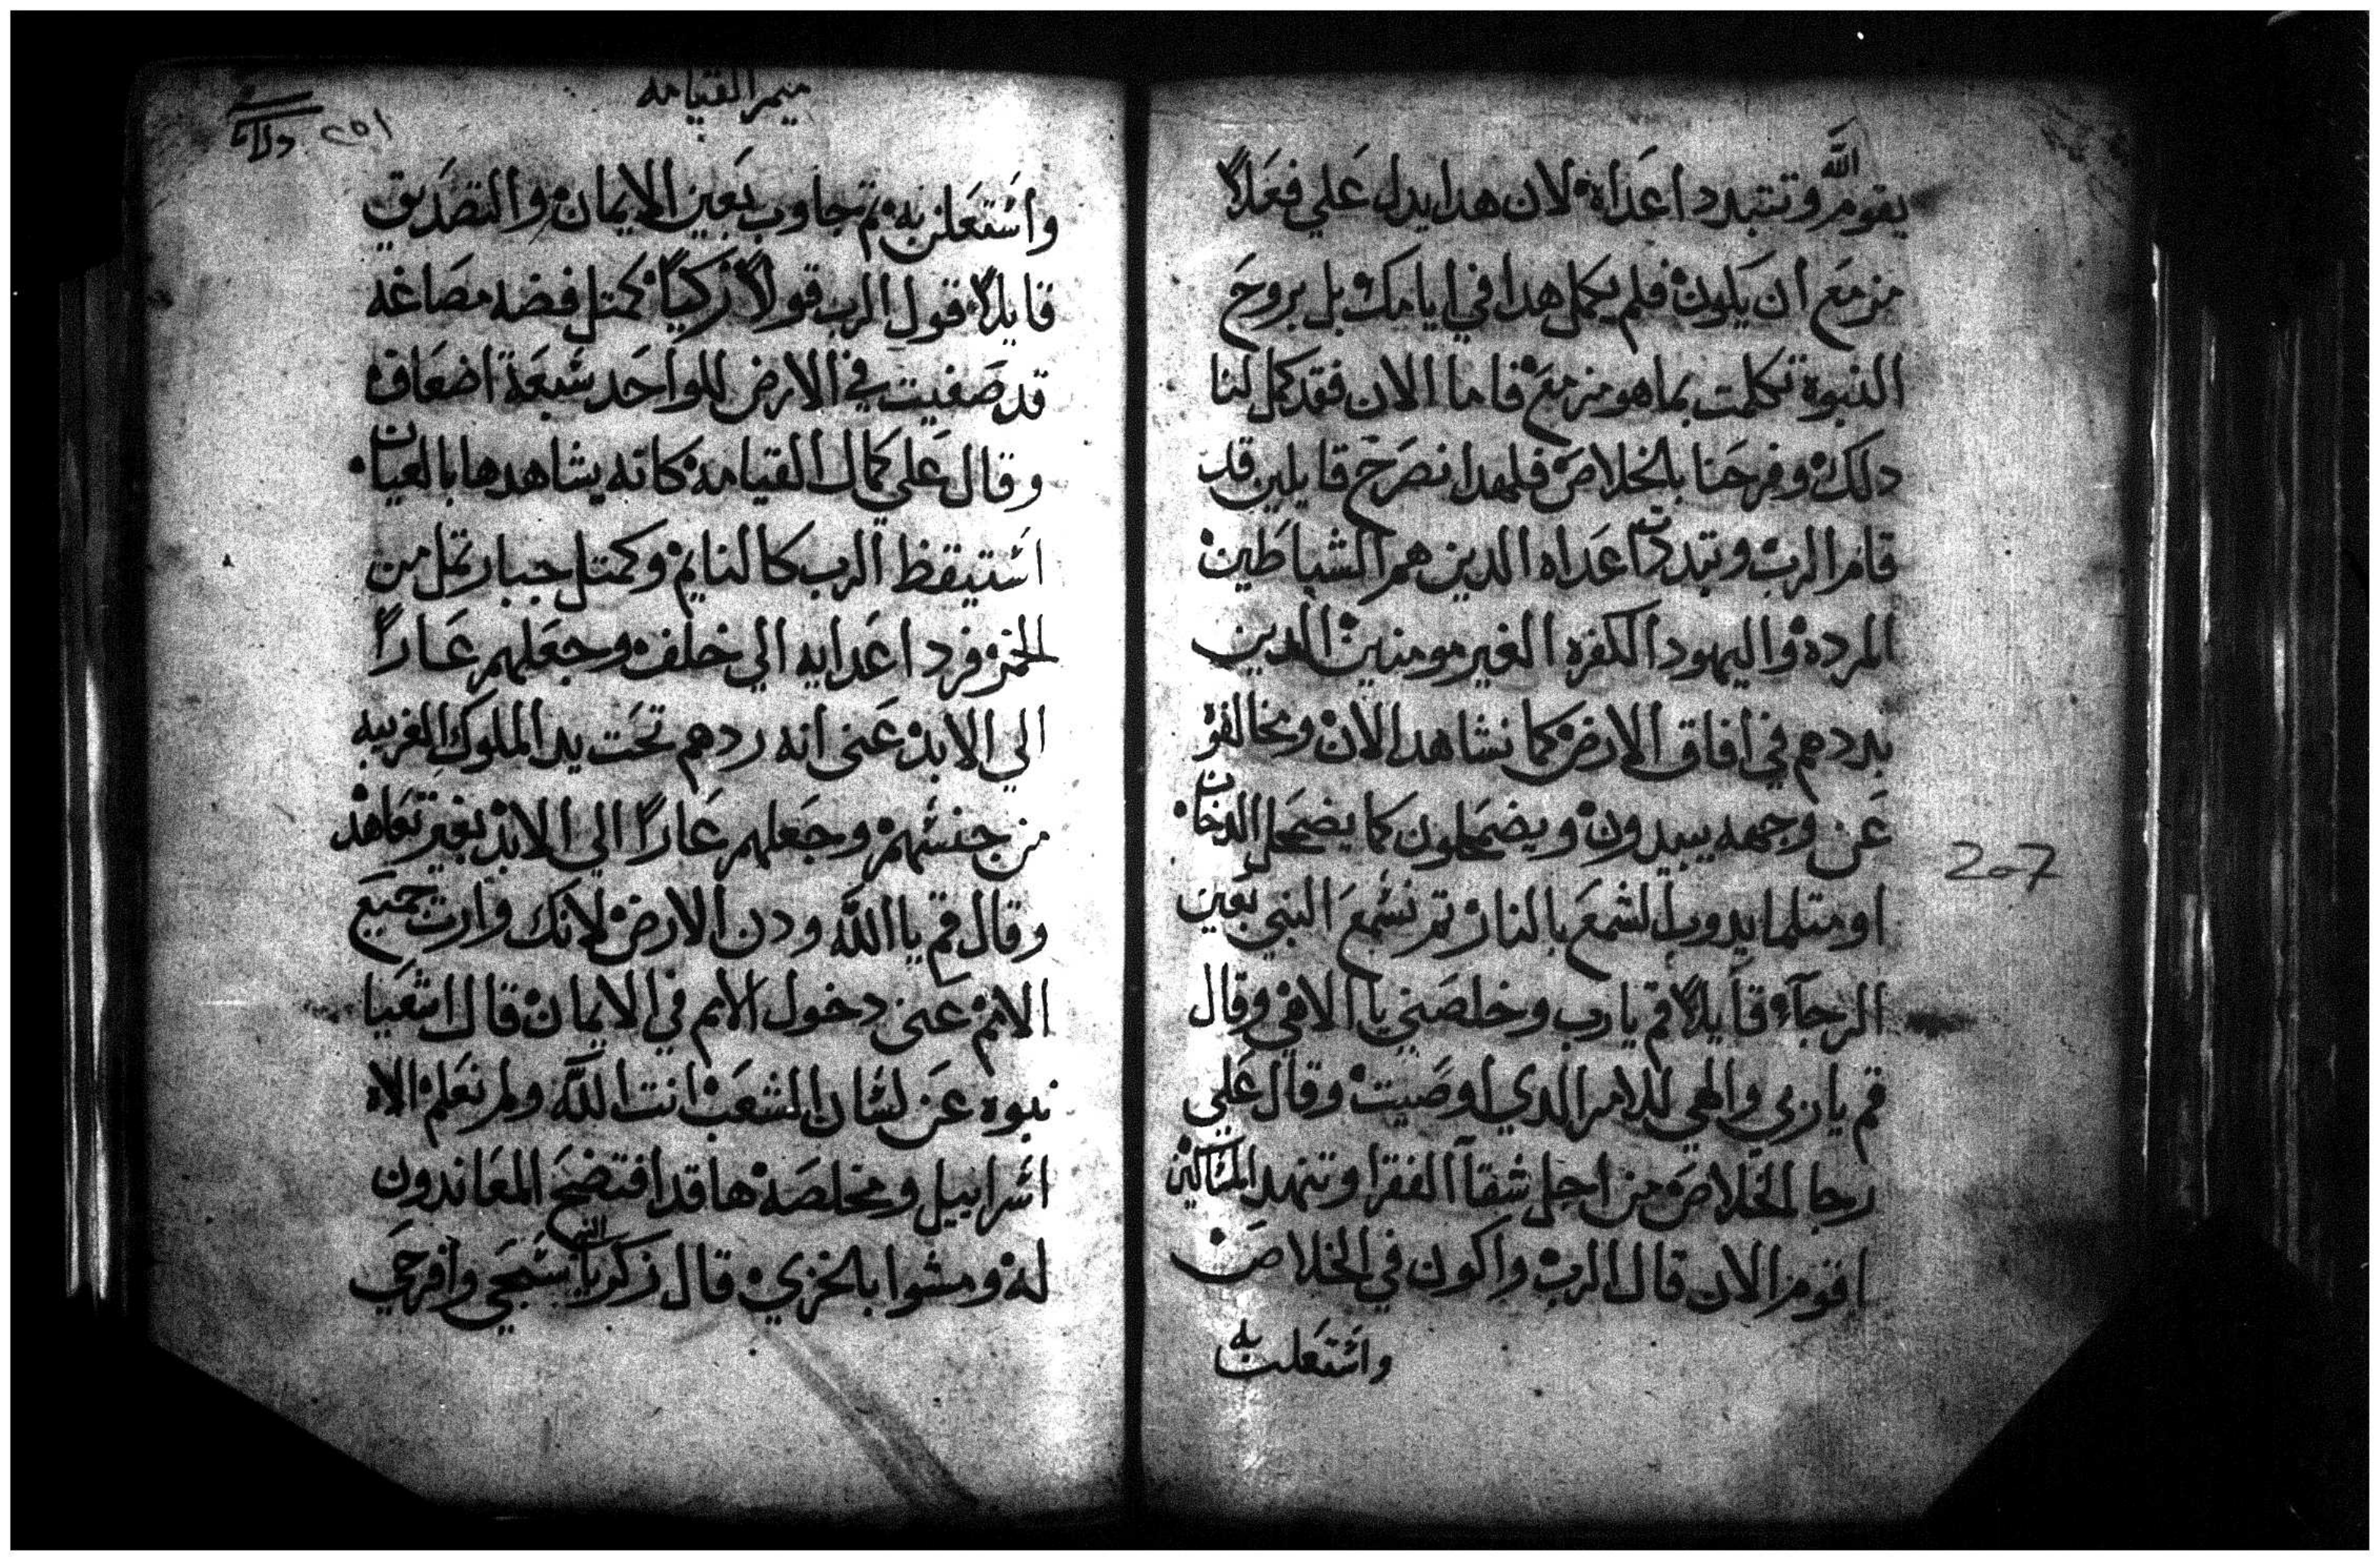 يقوم الله وتتبدد اعداه لان هدا يدل علي فعلاً
مزمع ان يكون فلم يكمل هدا في ايامك بل بروح
النبوه تكلمت بما هو مزمع فاما الان فقد كمل لنا
دلك وفرحنا بالخلاص فلهدا نصرح قايلين قد
قام الرب وتبددت اعداه الدين هم الشياطين
المرده واليهود الكفره الغير مومنين الدين
بددهم في افاق الارض كما نشاهد الان ومخالفوه
عن وجهه يبيدون ويضمحلون كما يضمحل الدخان
او متلما يدوب الشمع بالنار تم نسمع النبي بعين
الرجاء قايلاً قم يارب وخلصني يا الاهي وقال
قم يا ربي والهي للامر الدي اوصيت وقال علي
رجا الخلاص من اجل شقآ الفقرا وتنهد المساكين
اقوم الان قال الرب واكون في الخلاص
واستعلن به
207
ميمر القيامه
٢٥١
واستعلن به تم تجاوب بعين الايمان والتصديق
قايلاً قول الرب قولاً زكياً كمتل فضه مصاغه
قد صفيت في الارض للواحد سبعة اضعاف
وقال علي كمال القيامه كانه يشاهدها بالعيان
استيقظ الرب كالنايم وكمتل جبار تمل من
الخمر فرد اعدايه الي خلف وجعلهم عاراً
الي الابد عني انه ردهم تحت يد الملوك الغريبه
من جنسهم وجعلهم عاراً الي الابد بغير تعاهد
وقال قم يا الله ودن الارض لانك وارت جميع
الامم عني دخول الامم في الايمان قال اشعيا
نبوه عن لسان الشعب انت الله ولم نعلم الاه
اسراييل ومخلصه ها قد افتضح المعاندون
له ومشوا بالخزي قال زكريا النبي سبحي وافرحي